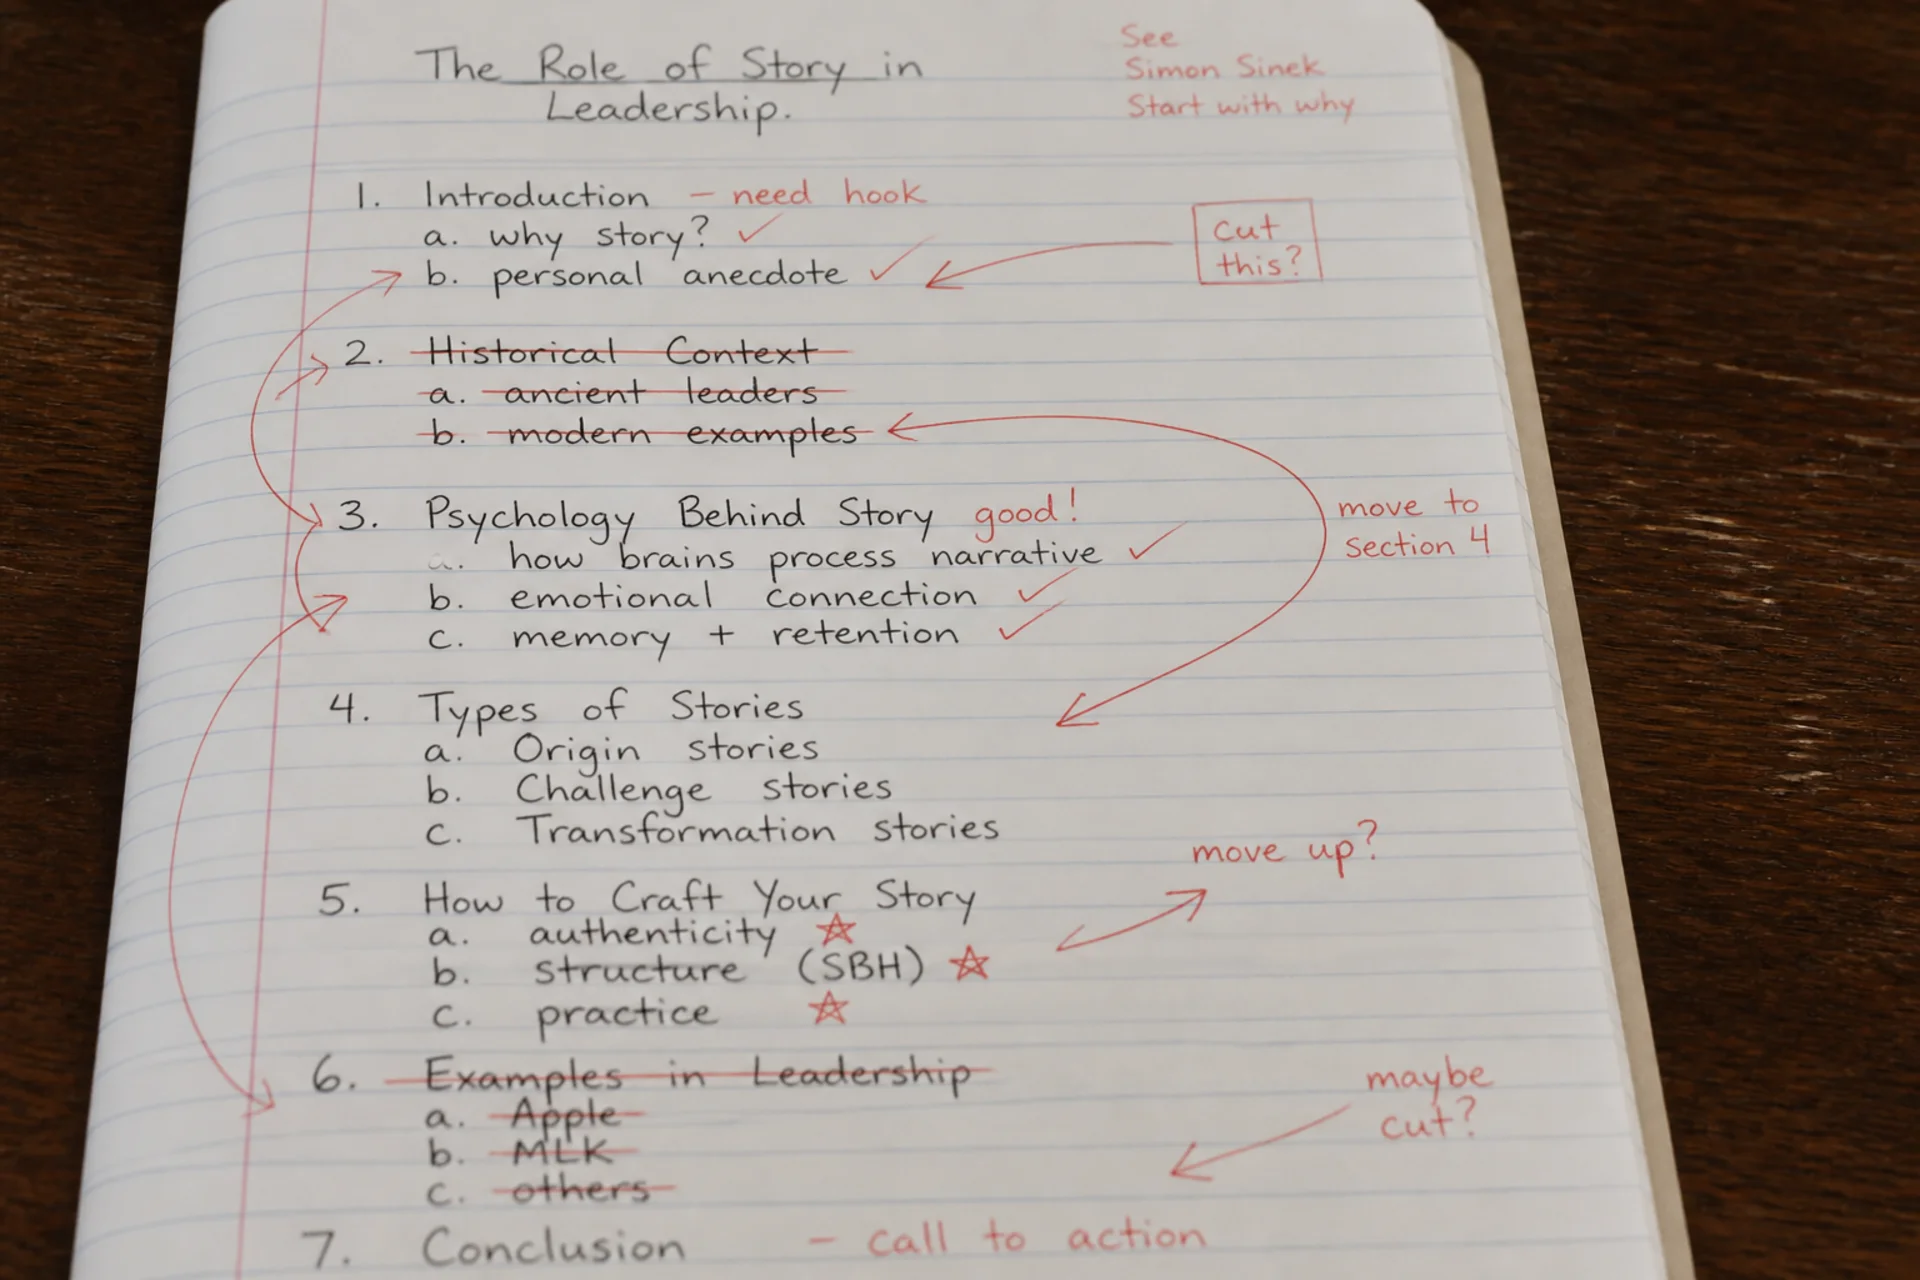 The Role of Story in
Leadership.
See
Simon Sinek
Start with why
1. Introduction – need hook
a. why story? ✓
b. personal anecdote ✓
cut
this?
2. Historical Context
a. ancient leaders
b. modern examples
3. Psychology Behind Story good!
a. how brains process narrative ✓
b. emotional connection ✓
c. memory + retention ✓
move to
section 4
4. Types of Stories
a. Origin stories
b. Challenge stories
c. Transformation stories
move up?
5. How to Craft Your Story
a. authenticity ☆
b. structure (SBH) ☆
c. practice ☆
6. Examples in Leadership
a. Apple
b. MLK
c. others
maybe
cut?
7. Conclusion – call to action